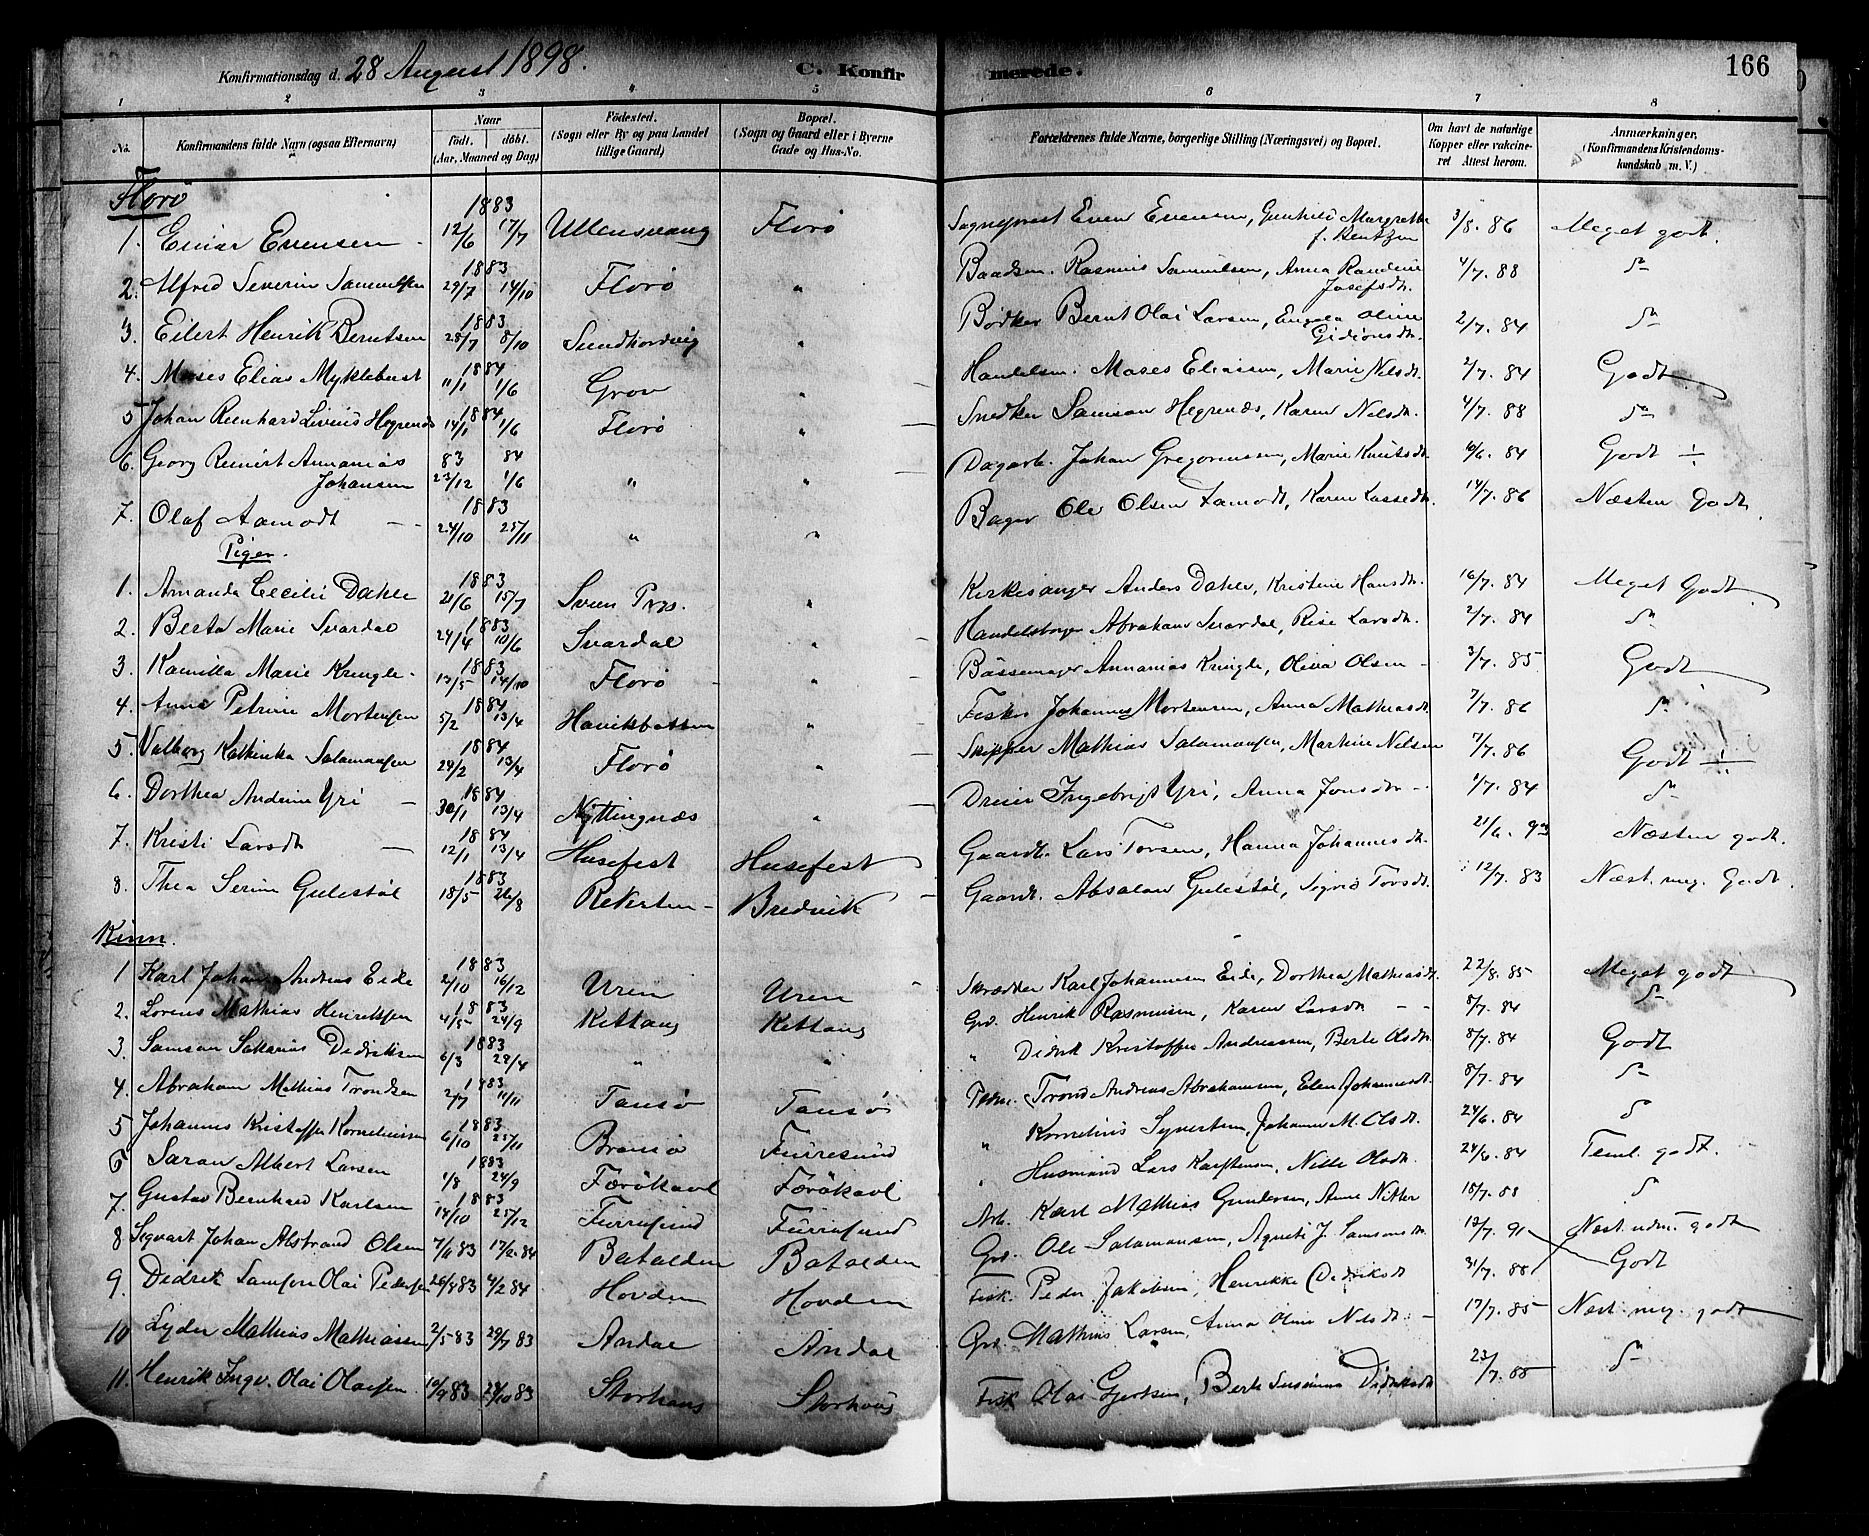 Konfirmationsdag d. 28 August 1898.
C. Konfirmerede.
166
1 2 3 4 5 6 7 8
No.
Konfirmandens fulde Navn (ogsaa Efternavn)
Naar
født. døbt.
(Aar, Maaned og Dag)
Fødested.
(Sogn eller By og paa Landet
tillige Gaard)
Bopæl.
(Sogn og Gaard eller i Byerne
Gade og Hus-No.
Forældrenes fulde Navne, borgerlige Stilling (Næringsvei) og Bopæl.
Om havt de naturlige
Kopper eller vakcine-
ret Attest herom.
Anmærkninger,
(Konfirmandens Kristendoms-
kundskab m. V.)
Florø
1. Einar Evensen - 1883 12/6 17/7 Ullensvang Florø Sogneprest Even Evensen, Gunhild Margrethe f. Bentzen 3/8. 86 Meget godt.
2. Alfred Severin Samuelsen 1883 29/7 14/10 Florø " Baadsm. Rasmus Samuelsen, Anna Randine Josefsdt. 4/7. 88 do
3. Eilert Henrik Berntsen 1883 28/7 8/10 Sundhordvig " Bødker Bernt Olai Larsen, Engela Oline Gidionsdt. 2/7. 84 do
4. Moses Elias Myklebust 1884 11/1 1/6 Grov " Handelsm. Moses Eliassen, Marie Nilsdt. 2/7. 84 Godt
5 Johan Reinhard Livius Hegrenæs 1884 14/1 1/6 Florø " Snedker Samson Hegrenæs, Karen Nilsdt. 4/7. 88 do
6. Georg Reinert Annanias Johansen 83 84 23/12 1/6 " " Dagarb. Johan Gregoriussen, Marie Knutsdt. 10/6. 84 Godt ÷
7. Olaf Aamodt - - 1883 24/10 25/11 " " Bager Ole Olsen Aamodt, Karen Lassedt. 14/7. 86 Næsten Godt.
Piger.
1. Amanda Cecilie Dahle 1883 21/6 15/7 Sveen Prgs. " Kirkesanger Anders Dahle, Kristine Hansdt. 16/7. 84 Meget Godt
2. Berta Marie Svardal 1883 24/4 10/6 Svardal " Handelsborger Abraham Svardal, Rise Larsdt. 2/7. 84 do
3. Kamilla Marie Kringle - 1883 13/5 14/10 Florø - " Bøssemager Annanias Kringle, Oliva Olsen - 3/7. 85 Godt
4. Anna Petrine Mortensen 1884 5/2 13/4 Havikbotten " Fisker Johannes Mortensen, Anna Mathiasdt. 7/7. 86 do
5. Valborg Kathinka Salamonsen 1884 24/2 13/4 Florø " Skipper Mathias Salamonsen, Martine Nilsen 7/7. 86 Godt ÷
6. Dorthea Andrine Yri - 1884 30/1 13/4 Nyttingnæs " Dreier Ingebrigt Yri, Anna Jonsdtr - 1/7. 84 do
7. Kristi Larsdt - 1884 12/1 13/4 Husefest Husefest Gaardt. Lars Torsen, Hanna Johannesdt. 21/6. 93 Næsten godt.
8. Thea Serine Gulestøl 1883 18/5 26/8 Reksten - Bredvik - Gaardt. Absalon Gulestøl, Sigrid Torsdt. 12/7. 83 Næst. meg. Godt.
Kinn.
1 Karl Johan Andreas Eide 1883 2/10 16/12 Uren Uren Skrædder Karl Johannesen Eide, Dorthea Mathiasdt. 22/8. 85 Meget godt
2. Lorens Mathias Henriksen 1883 4/5 24/9 Kittang Kittang Grd. Henrik Rasmussen, Karen Larsdt - - 8/7. 84 do
3. Samson Sakarias Didriksen 1883 6/3 29/4 " " " Didrik Kristoffer Andreassen, Berte Olsdt. 8/7. 84 Godt
4. Abraham Mathias Trondsen 1883 2/7 11/11 Tansø Tansø Pdm. Trond Andreas Abrahamsen, Elen Johannesdt. 8/7. 84 do
5 Johannes Kristoffer Korneliussen 1883 6/10 25/11 Bransø Furesund " Kornelius Syvertsen, Johanne M. Olsdt. 24/6. 84 do
6 Saran Albert Larsen 1883 1/8 24/9 Færøkavl Førøkavl " Husmand Lars Karstensen, Nille Olsdt. 24/6. 84 Teml. godt.
7. Gustav Bernhard Karlsen 1883 14/10 25/12 Furresund Furresund Arb. Karl Mathias Gundersen, Anne Nitter 18/7. 88 do
8 Sigvart Johan Alstrand Olsen 7/6 83 17/2. 84 Batalden Batalden Grd. Ole Salamonsen, Agnete J. Samsonsdt. 12/7. 91 Næst. udm. godt
9. Didrik Samson Olai Pedersen 26/8 83 4/2 84 Hovden Hovden Fisk. Peder Jakobsen, Henrikke Didriksdt 31/7. 88 Godt
10 Lyder Mathias Mathiassen 2/5 83 29/7 83 Andal Andal Grd. Mathias Larsen, Anna Oline Nilsdt. - 17/7. 85 Næst. meg. godt
11. Henrik Ingv. Olai Olaisen 10/9 83 28/10 83 Storhaug Storhaug Fisk Olai Gjertsen, Berte Susanna Didriksdt 23/7. 88 do